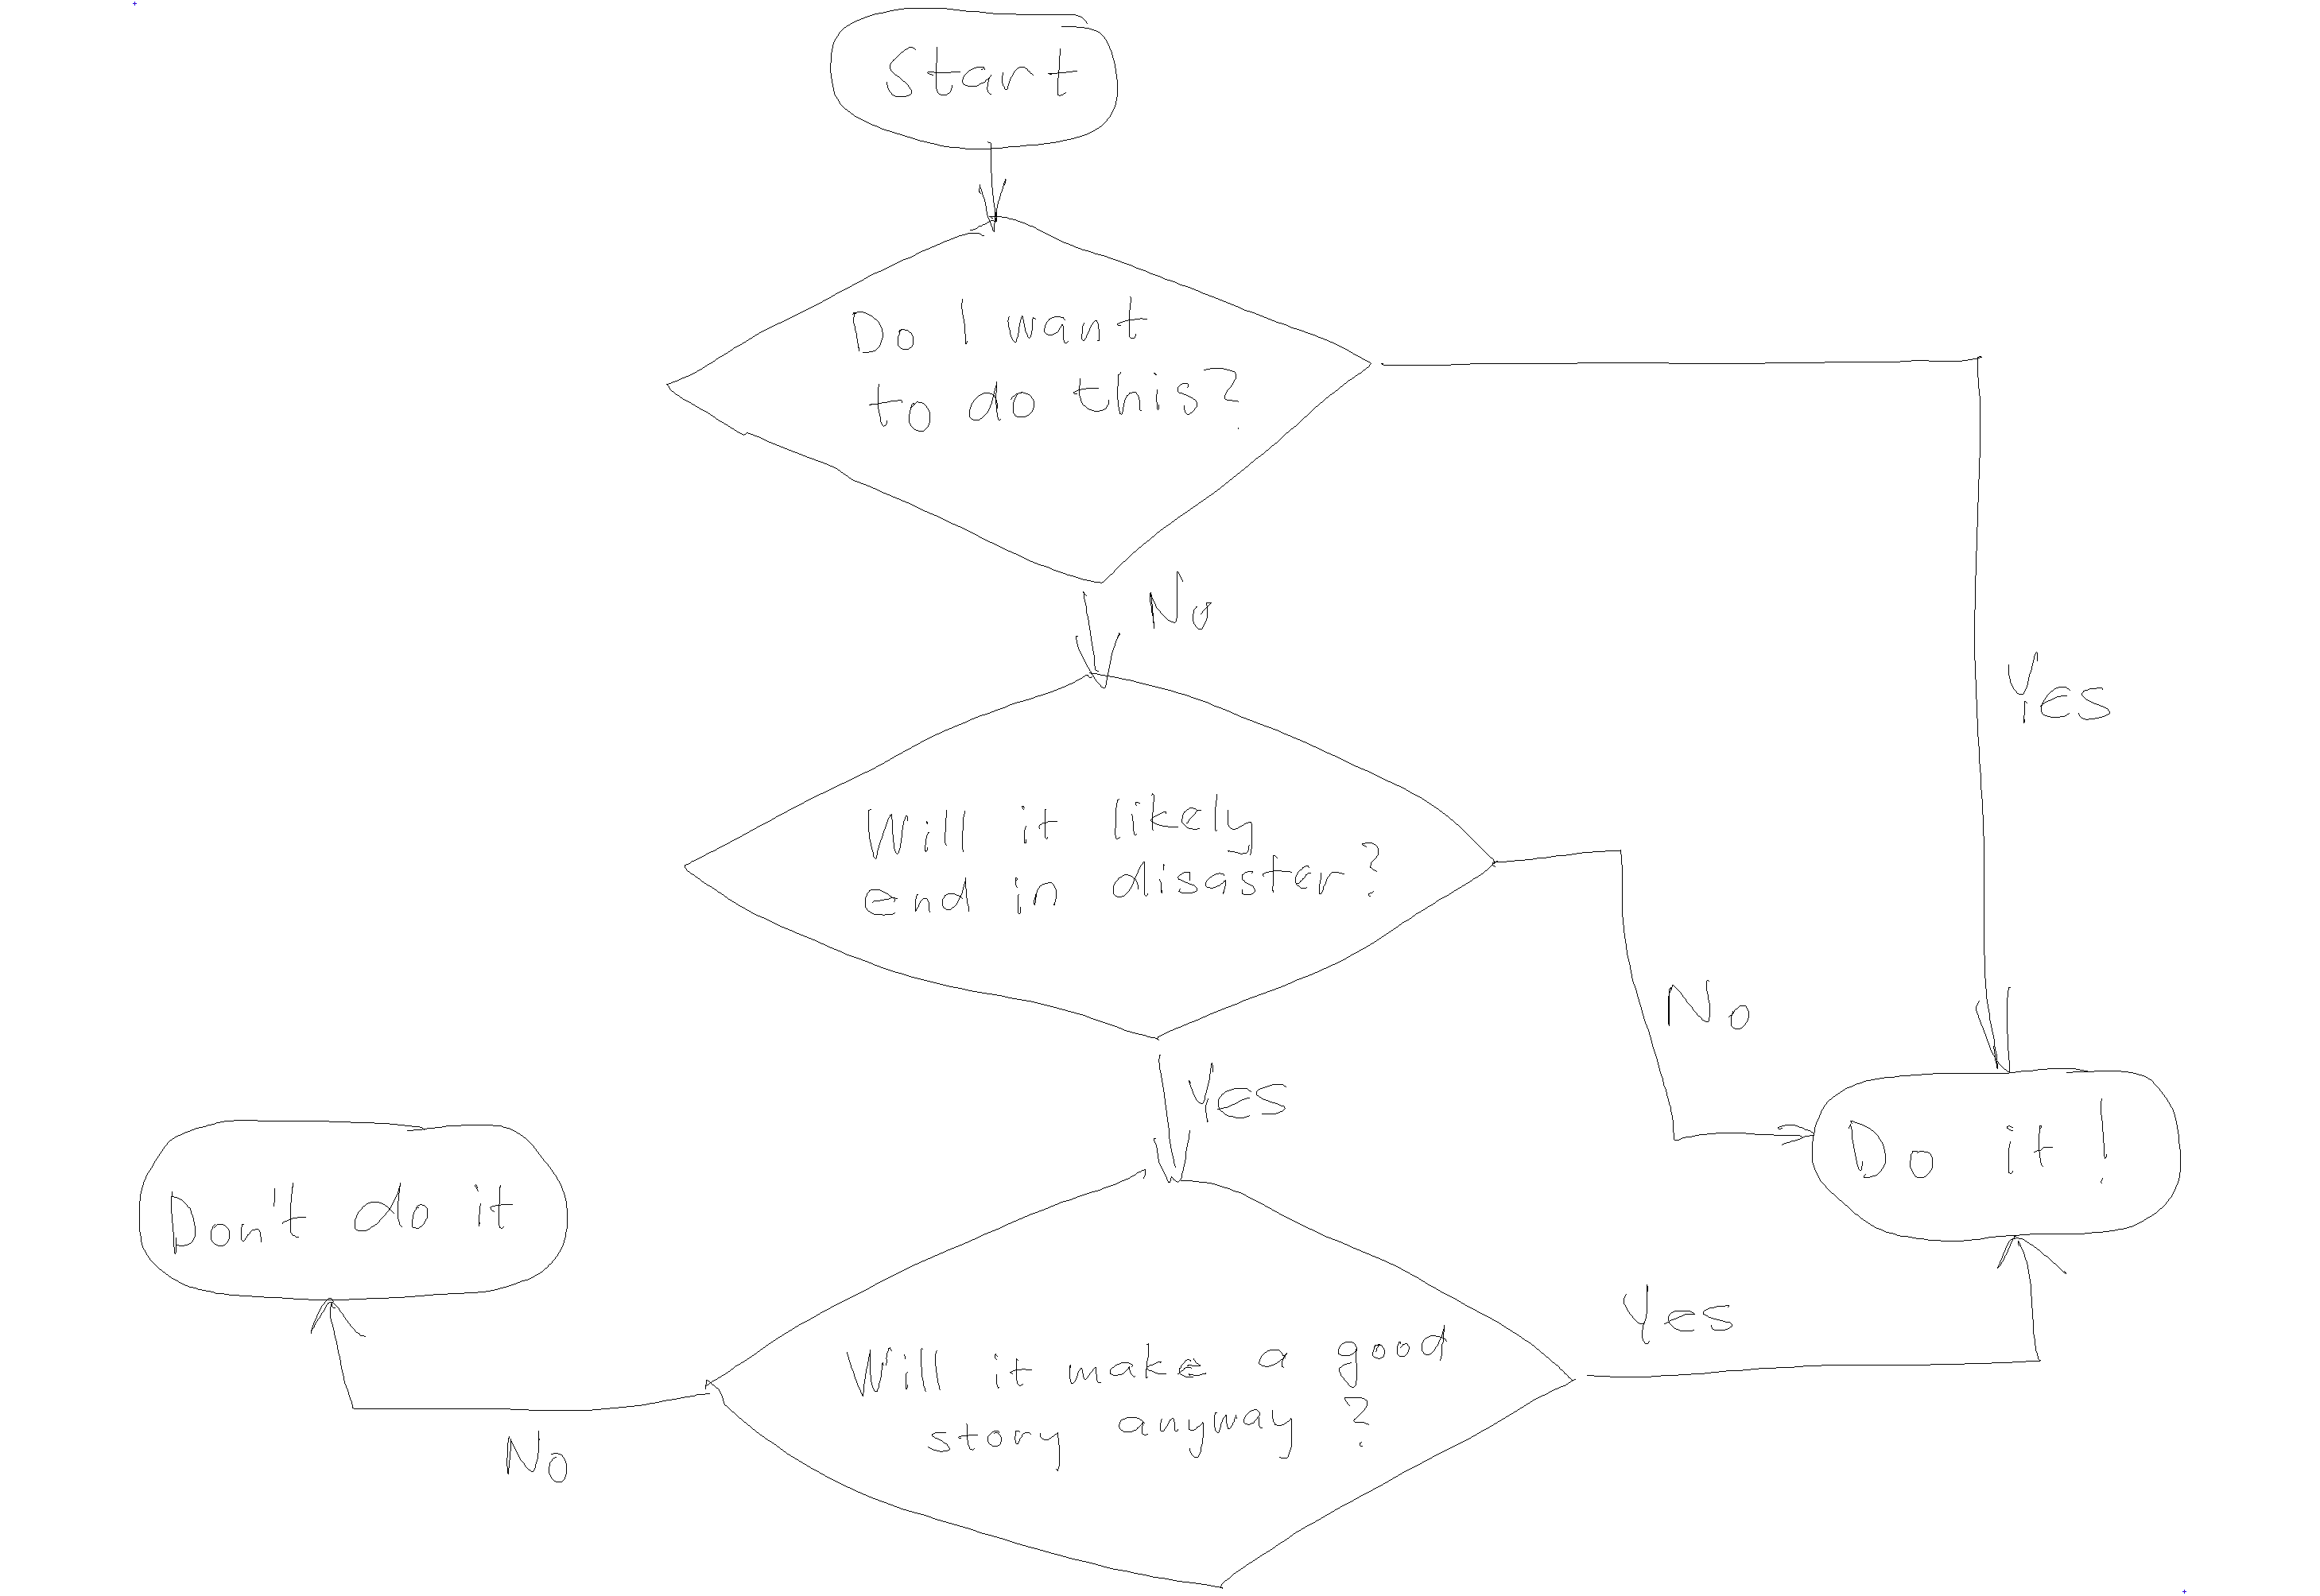 Start
Do I want
to do this?
No
Yes
Will it likely
end in disaster?
No
Yes
Don't do it
Do it!
Will it make a good
story anyway?
Yes
No